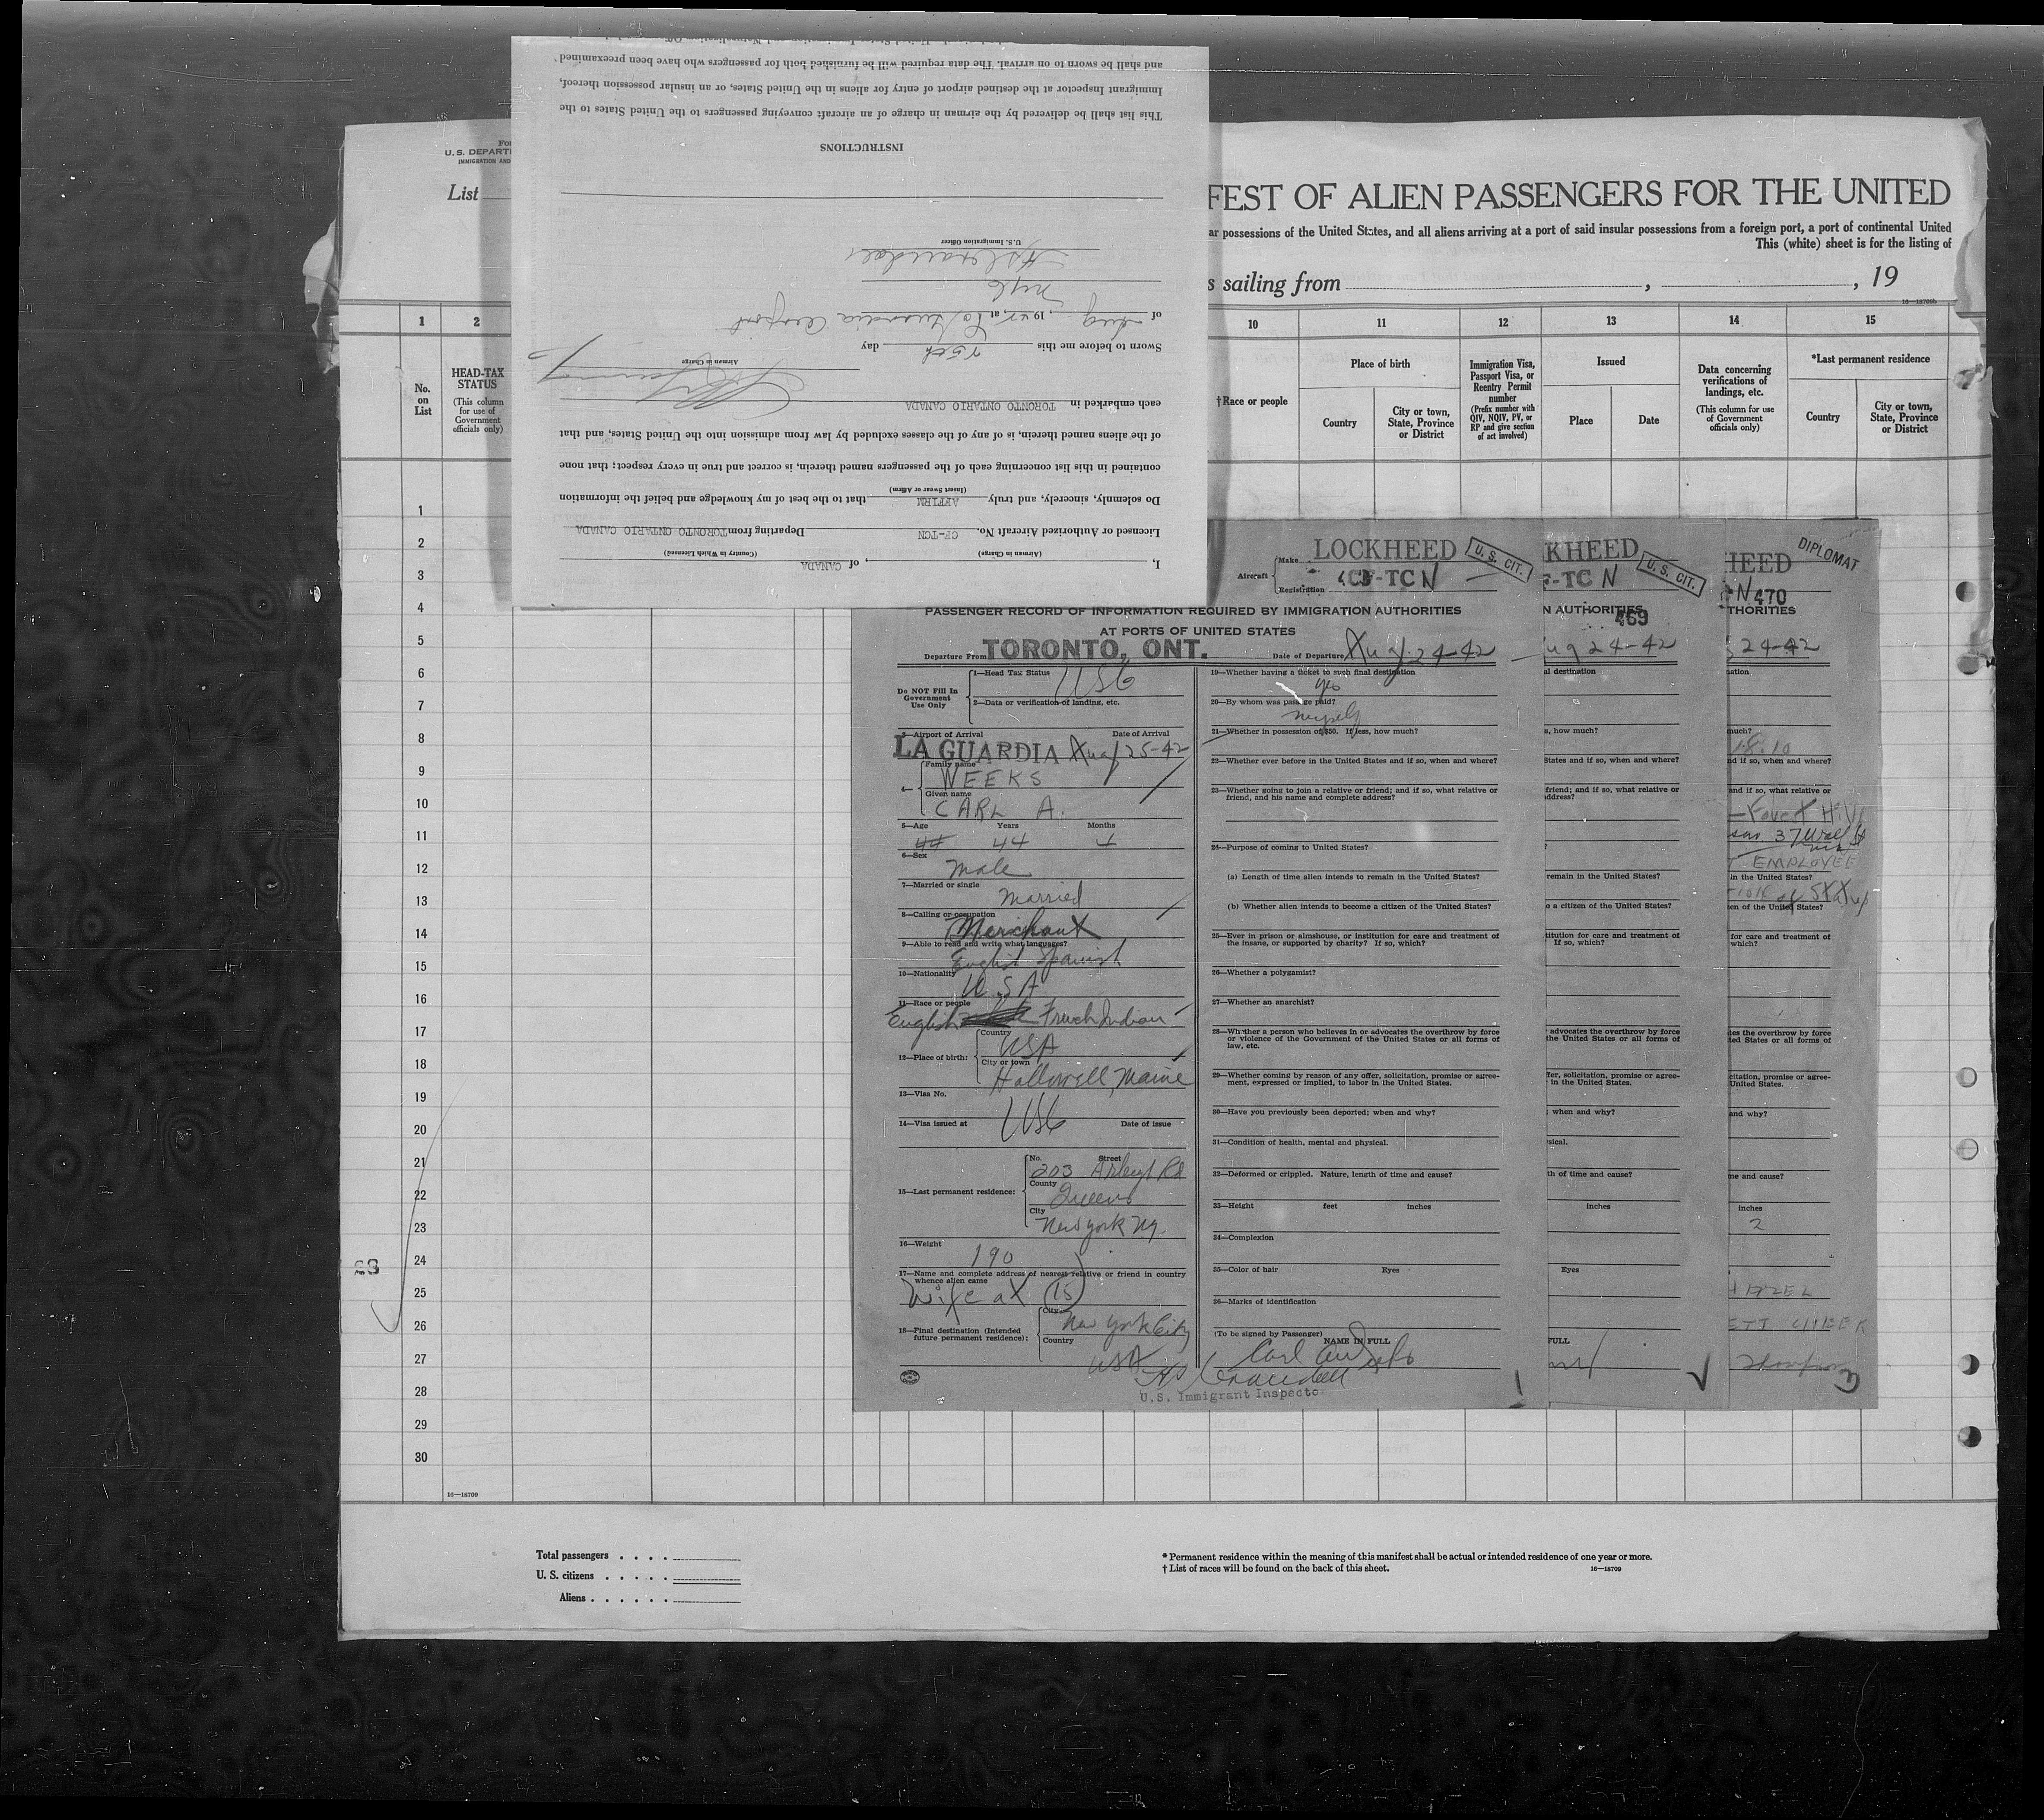 and shall be sworn to on arrival. The data required will be furnished both for passengers who have been preexamined
Immigrant Inspector at the destined airport of entry for aliens in the United States, or an insular possession thereof,
This list shall be delivered by the airman in charge of an aircraft conveying passengers to the United States to the
INSTRUCTIONS
U. S. Immigration Officer
of Aug, 19 42, at La Guardia Airport
Sworn to before me this 25th day
Airman in Charge
each embarked in TORONTO ONTARIO CANADA
of the aliens named therein, is of any of the classes excluded by law from admission into the United States, and that
contained in this list concerning each of the passengers named therein, is correct and true in every respect; that none
(Insert Swear or Affirm)
Do solemnly, sincerely, and truly AFFIRM that to the best of my knowledge and belief the information
Licensed or Authorized Aircraft No. CF-TCN Departing from TORONTO ONTARIO CANADA
(Airman in Charge) (Country in Which Licensed)
I, , of CANADA
U. S. DEPART
IMMIGRATION AND
List
FEST OF ALIEN PASSENGERS FOR THE UNITED
ar possessions of the United States, and all aliens arriving at a port of said insular possessions from a foreign port, a port of continental United
This (white) sheet is for the listing of
s sailing from , , 19
16—18709b
1 2 10 11 12 13 14 15
No. on List
HEAD-TAX STATUS
(This column for use of Government officials only)
†Race or people
Place of birth
Country
City or town, State, Province or District
Immigration Visa, Passport Visa, or Reentry Permit number
(Prefix number with QIV, NQIV, PV, or RP and give section of act involved)
Issued
Place
Date
Data concerning verifications of landings, etc.
(This column for use of Government officials only)
*Last permanent residence
Country
City or town, State, Province or District
1
2
3
4
5
6
7
8
9
10
11
12
13
14
15
16
17
18
19
20
21
22
23
24
25
26
27
28
29
30
28
16—18709
Aircraft
Make LOCKHEED
U. S. CIT.
Registration CF-TC N
PASSENGER RECORD OF INFORMATION REQUIRED BY IMMIGRATION AUTHORITIES
AT PORTS OF UNITED STATES
Departure From TORONTO, ONT. Date of Departure Aug. 24-42
Do NOT Fill In Government Use Only
1—Head Tax Status USC
2—Data or verification of landing, etc.
3—Airport of Arrival Date of Arrival
LA GUARDIA Aug 25-42
4—
Family name
WEEKS
Given name
CARL A.
5—Age Years Months
44 44
6—Sex
Male
7—Married or single
Married
8—Calling or occupation
Merchant
9—Able to read and write what languages?
English Spanish
10—Nationality
U.S.A
11—Race or people
English French Indian
12—Place of birth:
Country
USA
City or town
Hallowell, Maine
13—Visa No.
14—Visa issued at USC Date of issue
15—Last permanent residence:
No. Street
203 Rd
County
Queens
City
New York NY.
16—Weight
190
17—Name and complete address of nearest relative or friend in country
whence alien came
Wife at (15)
18—Final destination (Intended
future permanent residence):
City
New York City
Country
USA
19—Whether having a ticket to such final destination
yes
20—By whom was passage paid?
myself
21—Whether in possession of $50. If less, how much?
22—Whether ever before in the United States and if so, when and where?
23—Whether going to join a relative or friend; and if so, what relative or
friend, and his name and complete address?
24—Purpose of coming to United States?
(a) Length of time alien intends to remain in the United States?
(b) Whether alien intends to become a citizen of the United States?
25—Ever in prison or almshouse, or institution for care and treatment of
the insane, or supported by charity? If so, which?
26—Whether a polygamist?
27—Whether an anarchist?
28—Whether a person who believes in or advocates the overthrow by force
or violence of the Government of the United States or all forms of
law, etc.
29—Whether coming by reason of any offer, solicitation, promise or agree-
ment, expressed or implied, to labor in the United States.
30—Have you previously been deported; when and why?
31—Condition of health, mental and physical.
32—Deformed or crippled. Nature, length of time and cause?
33—Height feet inches
34—Complexion
35—Color of hair Eyes
36—Marks of identification
(To be signed by Passenger) NAME IN FULL
U.S. Immigrant Inspecto
KHEED
U. S. CIT.
F-TC N
N AUTHORITIES
469
ug 24-42
al destination
s, how much?
States and if so, when and where?
friend; and if so, what relative or
ddress?
?
remain in the United States?
e a citizen of the United States?
titution for care and treatment of
If so, which?
advocates the overthrow by force
the United States or all forms of
fer, solicitation, promise or agree-
in the United States.
; when and why?
sical.
th of time and cause?
inches
Eyes
FULL
HEED
DIPLOMAT
N 470
THORITIES
24-42
ation
much?
18.10
d if so, when and where?
and if so, what relative or
Forest Hill
37 Wall St
EMPLOYEE
in the United States?
en of the United States?
for care and treatment of
which?
tes the overthrow by force
ted States or all forms of
citation, promise or agree-
United States.
and why?
me and cause?
inches
2
HAZEL
CHEEK
Total passengers . . . .
U. S. citizens . . . . .
Aliens . . . . . .
* Permanent residence within the meaning of this manifest shall be actual or intended residence of one year or more.
† List of races will be found on the back of this sheet. 16—18709